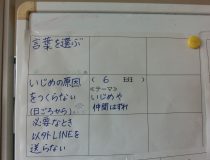 言葉を選ぶ
いじめの原因
をつくらない
(日ごろから)。
必要なとき
以外LINEを
送らない
( 6 班 )
<テーマ>
いじめや
仲間はずれ